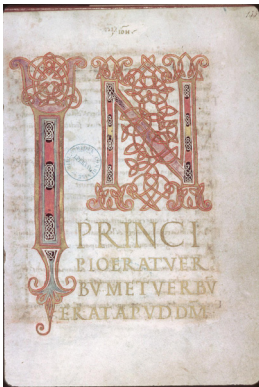 IN
PRINCI
PIOERATVER
BVMETVERBV
ERATAPVDDM